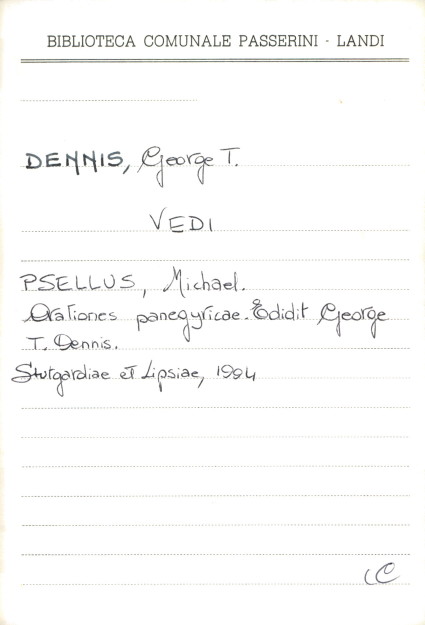 BIBLIOTECA COMUNALE PASSERINI - LANDI
DENNIS, George T.
VEDI
PSELLUS, Michael.
Orationes panegyricae. Edidit George
T. Dennis.
Stutgardiae et Lipsiae, 1994
C